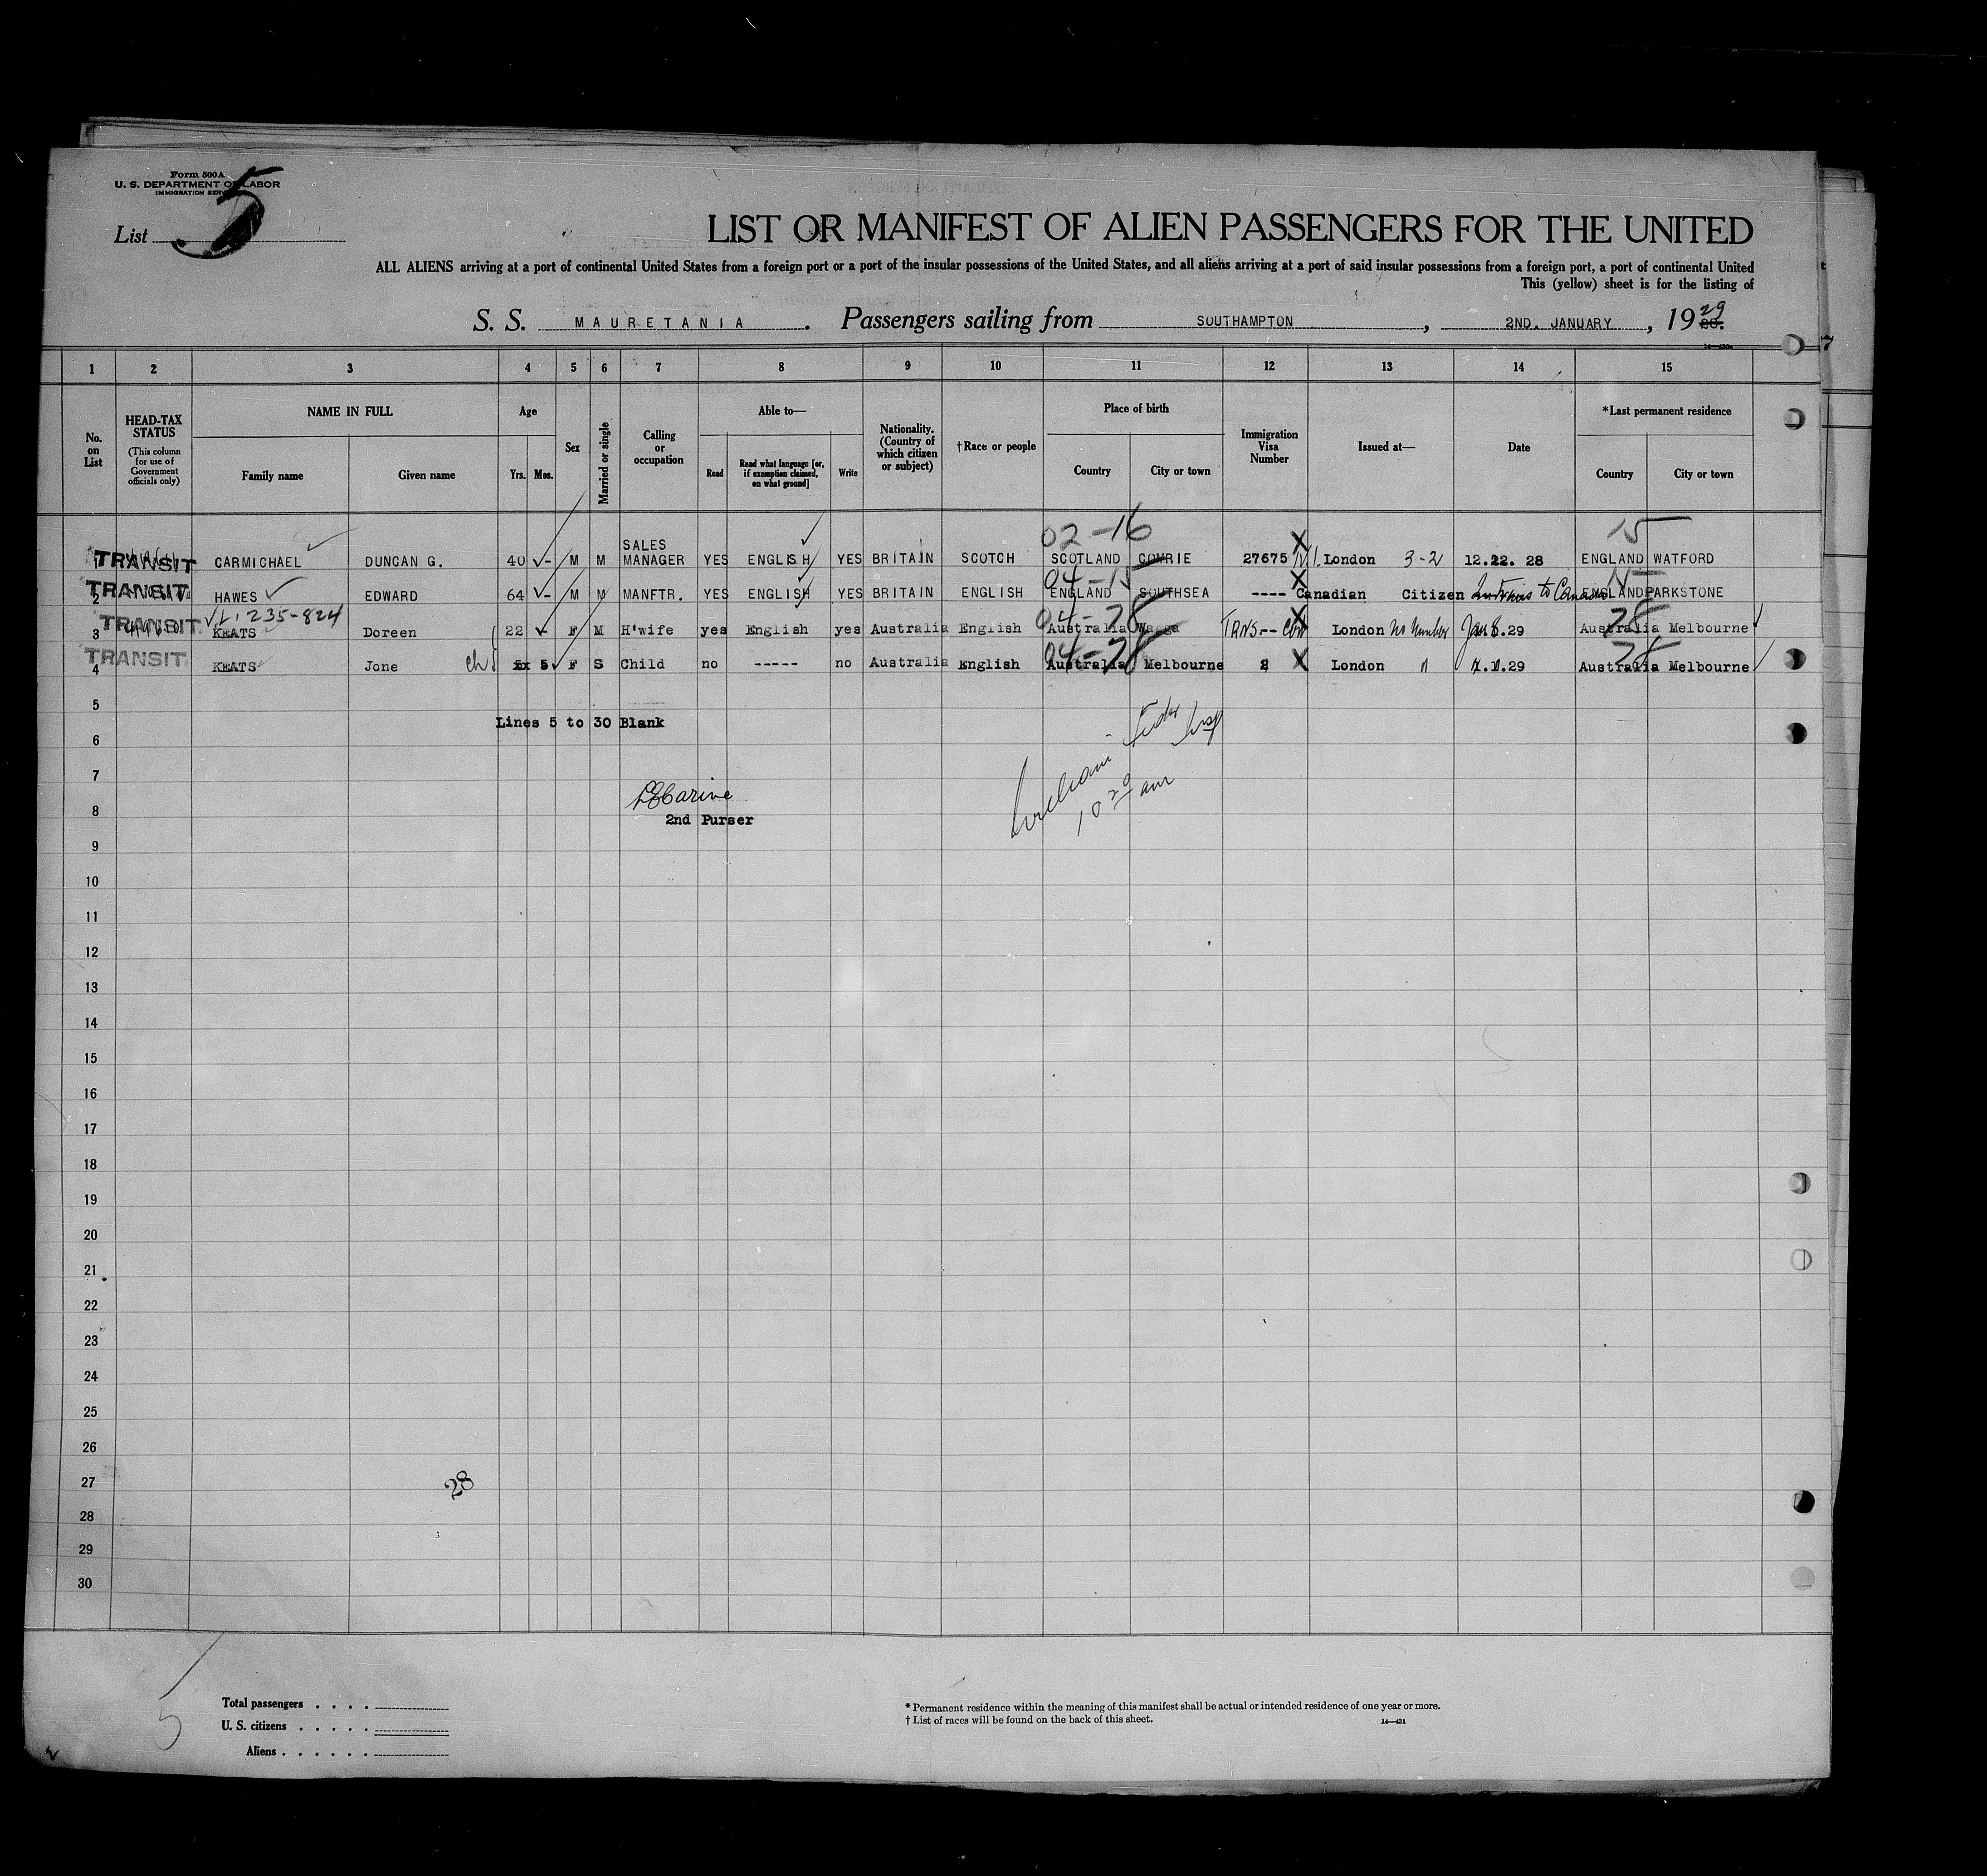 Form 500A
U. S. DEPARTMENT OF LABOR
IMMIGRATION SERVICE
List 5
LIST OR MANIFEST OF ALIEN PASSENGERS FOR THE UNITED
ALL ALIENS arriving at a port of continental United States from a foreign port or a port of the insular possessions of the United States, and all aliens arriving at a port of said insular possessions from a foreign port, a port of continental United
This (yellow) sheet is for the listing of
S. S. MAURETANIA. Passengers sailing from SOUTHAMPTON, 2ND. JANUARY, 19 29
1 2 3 4 5 6 7 8 9 10 11 12 13 14 15
No. on List
HEAD-TAX STATUS (This column for use of Government officials only)
NAME IN FULL Family name Given name
Age Yrs. Mos.
Sex
Married or single
Calling or occupation
Able to— Read Read what language [or, if exemption claimed, on what ground] Write
Nationality. (Country of which citizen or subject)
†Race or people
Place of birth Country City or town
Immigration Visa Number
Issued at—
Date
*Last permanent residence Country City or town
02-16 15
1 TRANSIT CARMICHAEL DUNCAN G. 40 - M M SALES MANAGER YES ENGLISH YES BRITAIN SCOTCH SCOTLAND COMRIE 27675 London 3-2 12.22. 28 ENGLAND WATFORD
04-15 15
2 TRANSIT HAWES EDWARD 64 - M M MANFTR. YES ENGLISH YES BRITAIN ENGLISH ENGLAND SOUTHSEA ---- Canadian Citizen In Trans to Canada ENGLAND PARKSTONE
235-824 04-28 28
3 TRANSIT KEATS Doreen 22 - F M H'wife yes English yes Australia English Australia Wagga TRNS-- London no number Jan 8.29 Australia Melbourne
04-28 28
4 TRANSIT KEATS Jone ch 5 F S Child no ----- no Australia English Australia Melbourne London " .1.29 Australia Melbourne
5
Lines 5 to 30 Blank
6
7
8
2nd Purser
10 20 am
9
10
11
12
13
14
15
16
17
18
19
20
21
22
23
24
25
26
27
28
28
29
30
5
Total passengers . . . .
U. S. citizens . . . . .
Aliens . . . . . .
* Permanent residence within the meaning of this manifest shall be actual or intended residence of one year or more.
† List of races will be found on the back of this sheet.
14—431